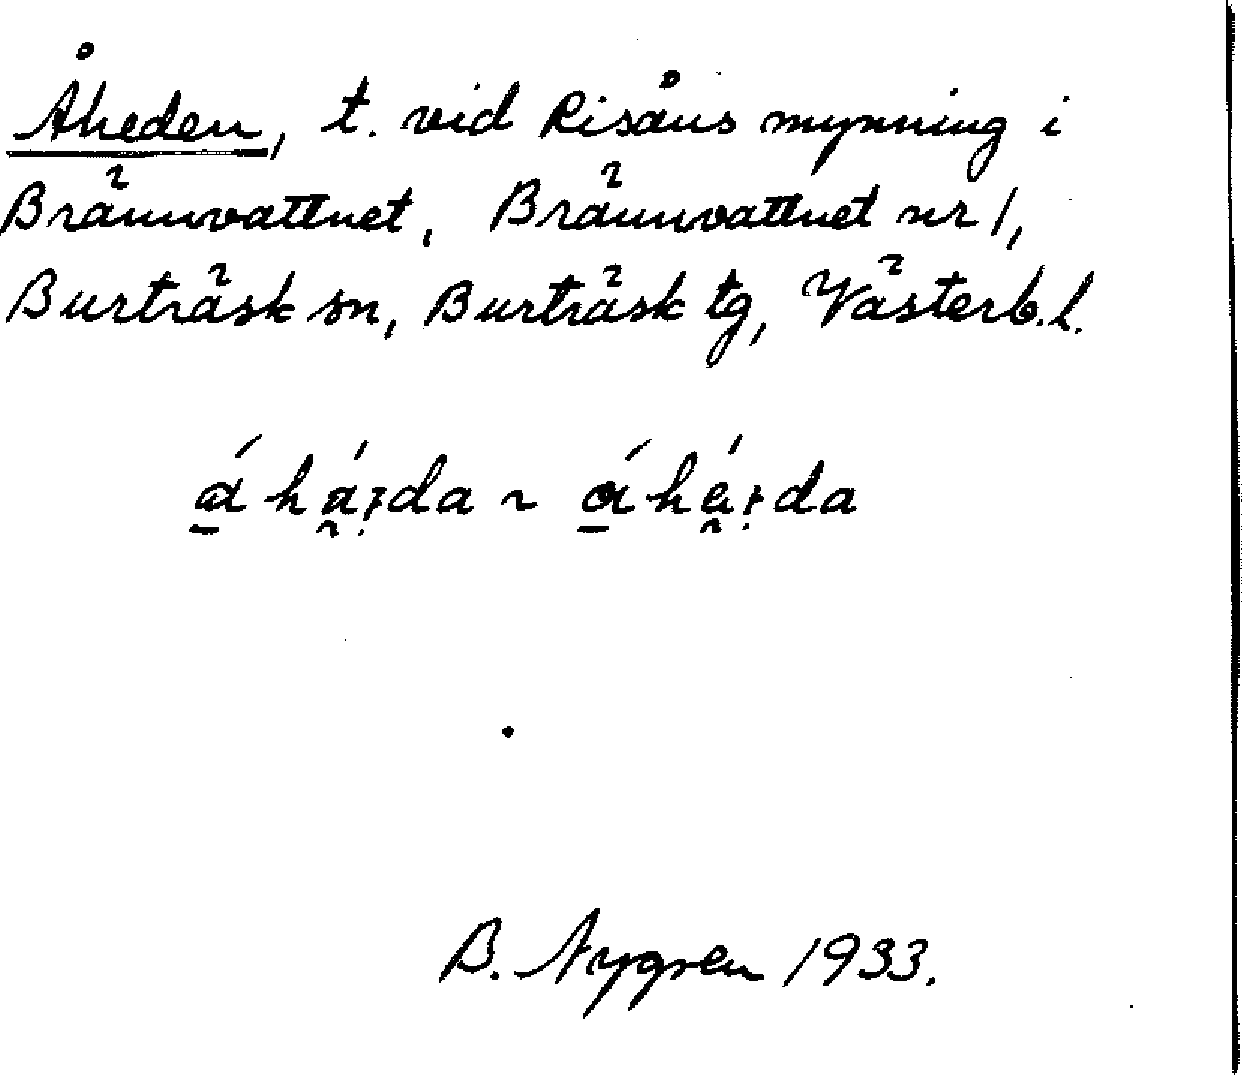 Åheden, t. vid Risåns mynning i
Brännvattnet, Brännvattnet nr 1,
Burträsk sn, Burträsk tg, Västerb. l.
B. Nygren 1933.